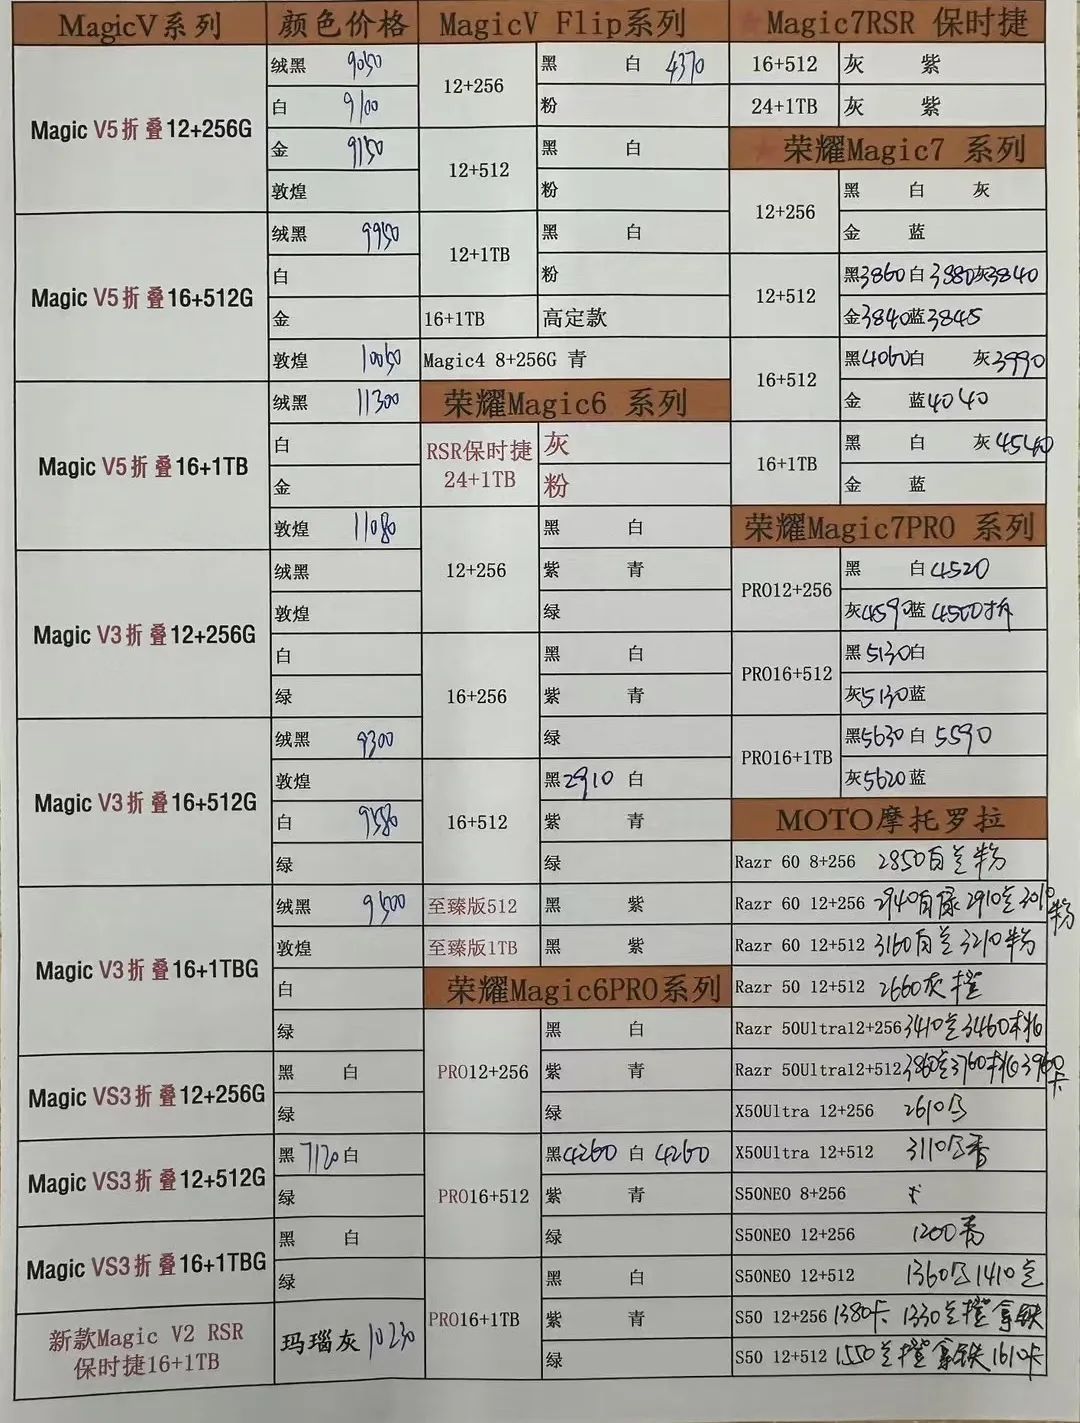 MagicV系列 颜色价格
Magic V5折叠12+256G
绒黑 9050
白 9100
金 9150
敦煌
Magic V5折叠16+512G
绒黑 9950
白
金
敦煌 10050
Magic V5折叠16+1TB
绒黑 11300
白
金
敦煌 11080
Magic V3折叠12+256G
绒黑
敦煌
白
绿
Magic V3折叠16+512G
绒黑 9300
敦煌
白 9580
绿
Magic V3折叠16+1TBG
绒黑 9500
敦煌
白
绿
Magic VS3折叠12+256G
黑 白
绿
Magic VS3折叠12+512G
黑7120白
绿
Magic VS3折叠16+1TBG
黑 白
绿
新款Magic V2 RSR
保时捷16+1TB
玛瑙灰 10230
MagicV Flip系列
12+256
黑 白 4370
粉
12+512
黑 白
粉
12+1TB
黑 白
粉
16+1TB 高定款
Magic4 8+256G 青
荣耀Magic6 系列
RSR保时捷
24+1TB
灰
粉
12+256
黑 白
紫 青
绿
16+256
黑 白
紫 青
绿
16+512
黑2910 白
紫 青
绿
至臻版512 黑 紫
至臻版1TB 黑 紫
荣耀Magic6PRO系列
PRO12+256
黑 白
紫 青
绿
PRO16+512
黑4260 白 4260
紫 青
绿
PRO16+1TB
黑 白
紫 青
绿
★Magic7RSR 保时捷
16+512 灰 紫
24+1TB 灰 紫
★荣耀Magic7 系列
12+256
黑 白 灰
金 蓝
12+512
黑3860白3880灰3840
金3840蓝3845
16+512
黑4060白 灰3990
金 蓝4040
16+1TB
黑 白 灰4540
金 蓝
荣耀Magic7PRO 系列
PRO12+256
黑 白4520
灰4590蓝 4500拆
PRO16+512
黑5130白
灰5130蓝
PRO16+1TB
黑5630白 5590
灰5620蓝
MOTO摩托罗拉
Razr 60 8+256 2850白兰粉
Razr 60 12+256 2940白绿2910兰3010粉
Razr 60 12+512 3160白兰3210粉
Razr 50 12+512 2660灰橙
Razr 50Ultra12+256 3410兰3460桃
Razr 50Ultra12+512 3860兰3760桃3960卡
X50Ultra 12+256 2610
X50Ultra 12+512 3110
S50NEO 8+256
S50NEO 12+256 1200
S50NEO 12+512 1360 1410兰
S50 12+256 1380卡 1330兰橙拿铁
S50 12+512 1550兰橙拿铁1610卡